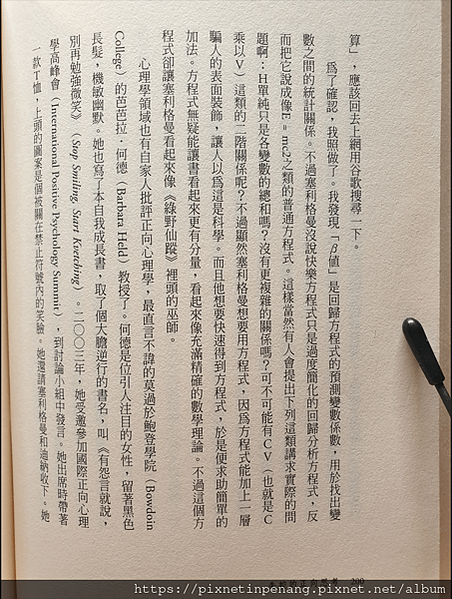 算」，應該回去上網用谷歌搜尋一下。
為了確認，我照做了。我發現「β值」是回歸方程式的預測變數係數，用於找出變
數之間的統計關係。不過塞利格曼沒說快樂方程式只是過度簡化的回歸分析方程式，反
而把它說成像E＝mc2之類的普通方程式。這樣當然有人會提出下列這類講求實際的問
題啊：H單純只是各變數的總和嗎？沒有更複雜的關係嗎？可不可能有CV（也就是C
乘以V）這類的二階關係呢？不過顯然塞利格曼想要用方程式，因為方程式能加上一層
騙人的表面裝飾，讓人以為這是科學。而且他想要快速得到方程式，於是便求助簡單的
加法。方程式無疑能讓書看起來更有分量，看起來像充滿精確的數學理論。不過這個方
程式卻讓塞利格曼看起來像《綠野仙蹤》裡頭的巫師。
心理學領域也有自家人批評正向心理學，最直言不諱的莫過於鮑登學院（Bowdoin
College）的芭芭拉．何德（Barbara Held）教授了。何德是位引人注目的女性，留著黑色
長髮，機敏幽默。她也寫了本自我成長書，取了個大膽逆行的書名，叫《有怨言就說，
別再勉強微笑》（Stop Smiling, Start Kvetching）。二〇〇三年，她受邀參加國際正向心理
學高峰會（International Positive Psychology Summit），到討論小組中發言。她出席時帶著
一款T恤，上頭的圖案是個被關在禁止符號內的笑臉。她還請塞利格曼和迪納收下。她
200
https://pixnetinpenang.pixnet.net/album